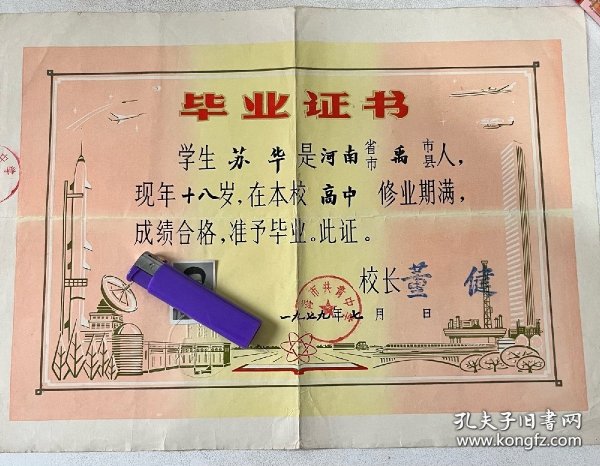 毕业证书
学生 苏 华 是河南省市 禹 市县人，
现年十八岁，在本校 高中 修业期满，
成绩合格，准予毕业。此证。
校长 董 健
市共青中
一九七九年七月 日
孔夫子旧书网
www.kongfz.com